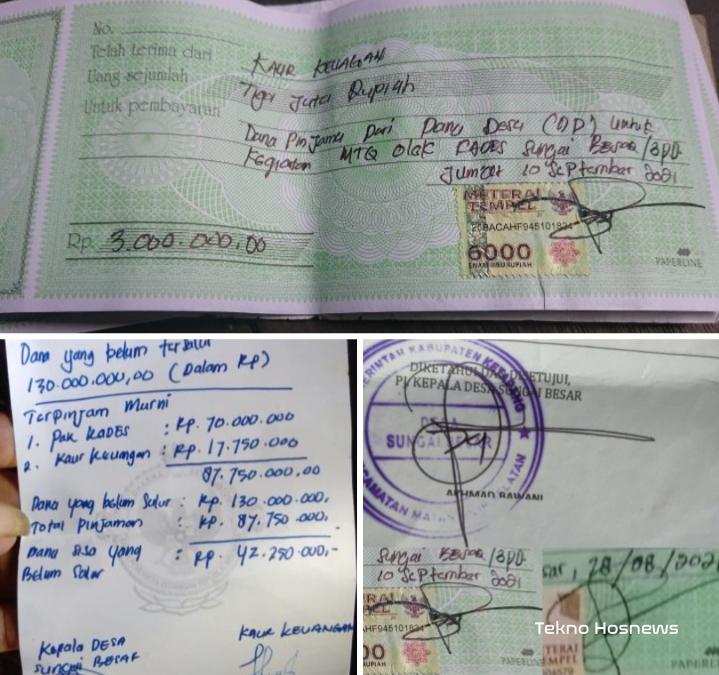 No.
Telah terima dari KAUR KEUAGAN
Uang sejumlah Tiga Juta Rupiah
Untuk pembayaran Dana Pinjama Dari Dana Desa (DD) untuk
Kegiatan MTQ Olak KADES Sungai Besar /BPD
Jumat 10 September 2021
METERAI
TEMPEL
945101834
6000
ENAM RIBU RUPIAH
Rp. 3.000.000,00
PAPERLINE
Dana yang belum
130.000.000,00 (Dalam Rp)
Terpinjam Murni
1. Pak KADES : Rp. 70.000.000
2. Kaur Keuangan : Rp. 17.750.000
87.750.000,00
Dana yang belum Salur : Rp. 130.000.000,
Total Pinjaman : Rp. 87.750.000,
Dana yang : Rp. 42.250.000,-
Belum Salur
Kepala DESA
Sungai BESAR
KAUR KEUANGAN
KABUPATEN
DIKETAHUI DAN DISETUJUI,
PJ KEPALA DESA SUNGAI BESAR
DESA
SUNGAI BESAR
AKHMAD BAWANI
Sungai Besar /BPD
10 September 2021
945101834
00
RUPIAH
PAPERLI
sar, 28/08/202
TERAI
MPEL
PAPERLINE
Tekno Hosnews